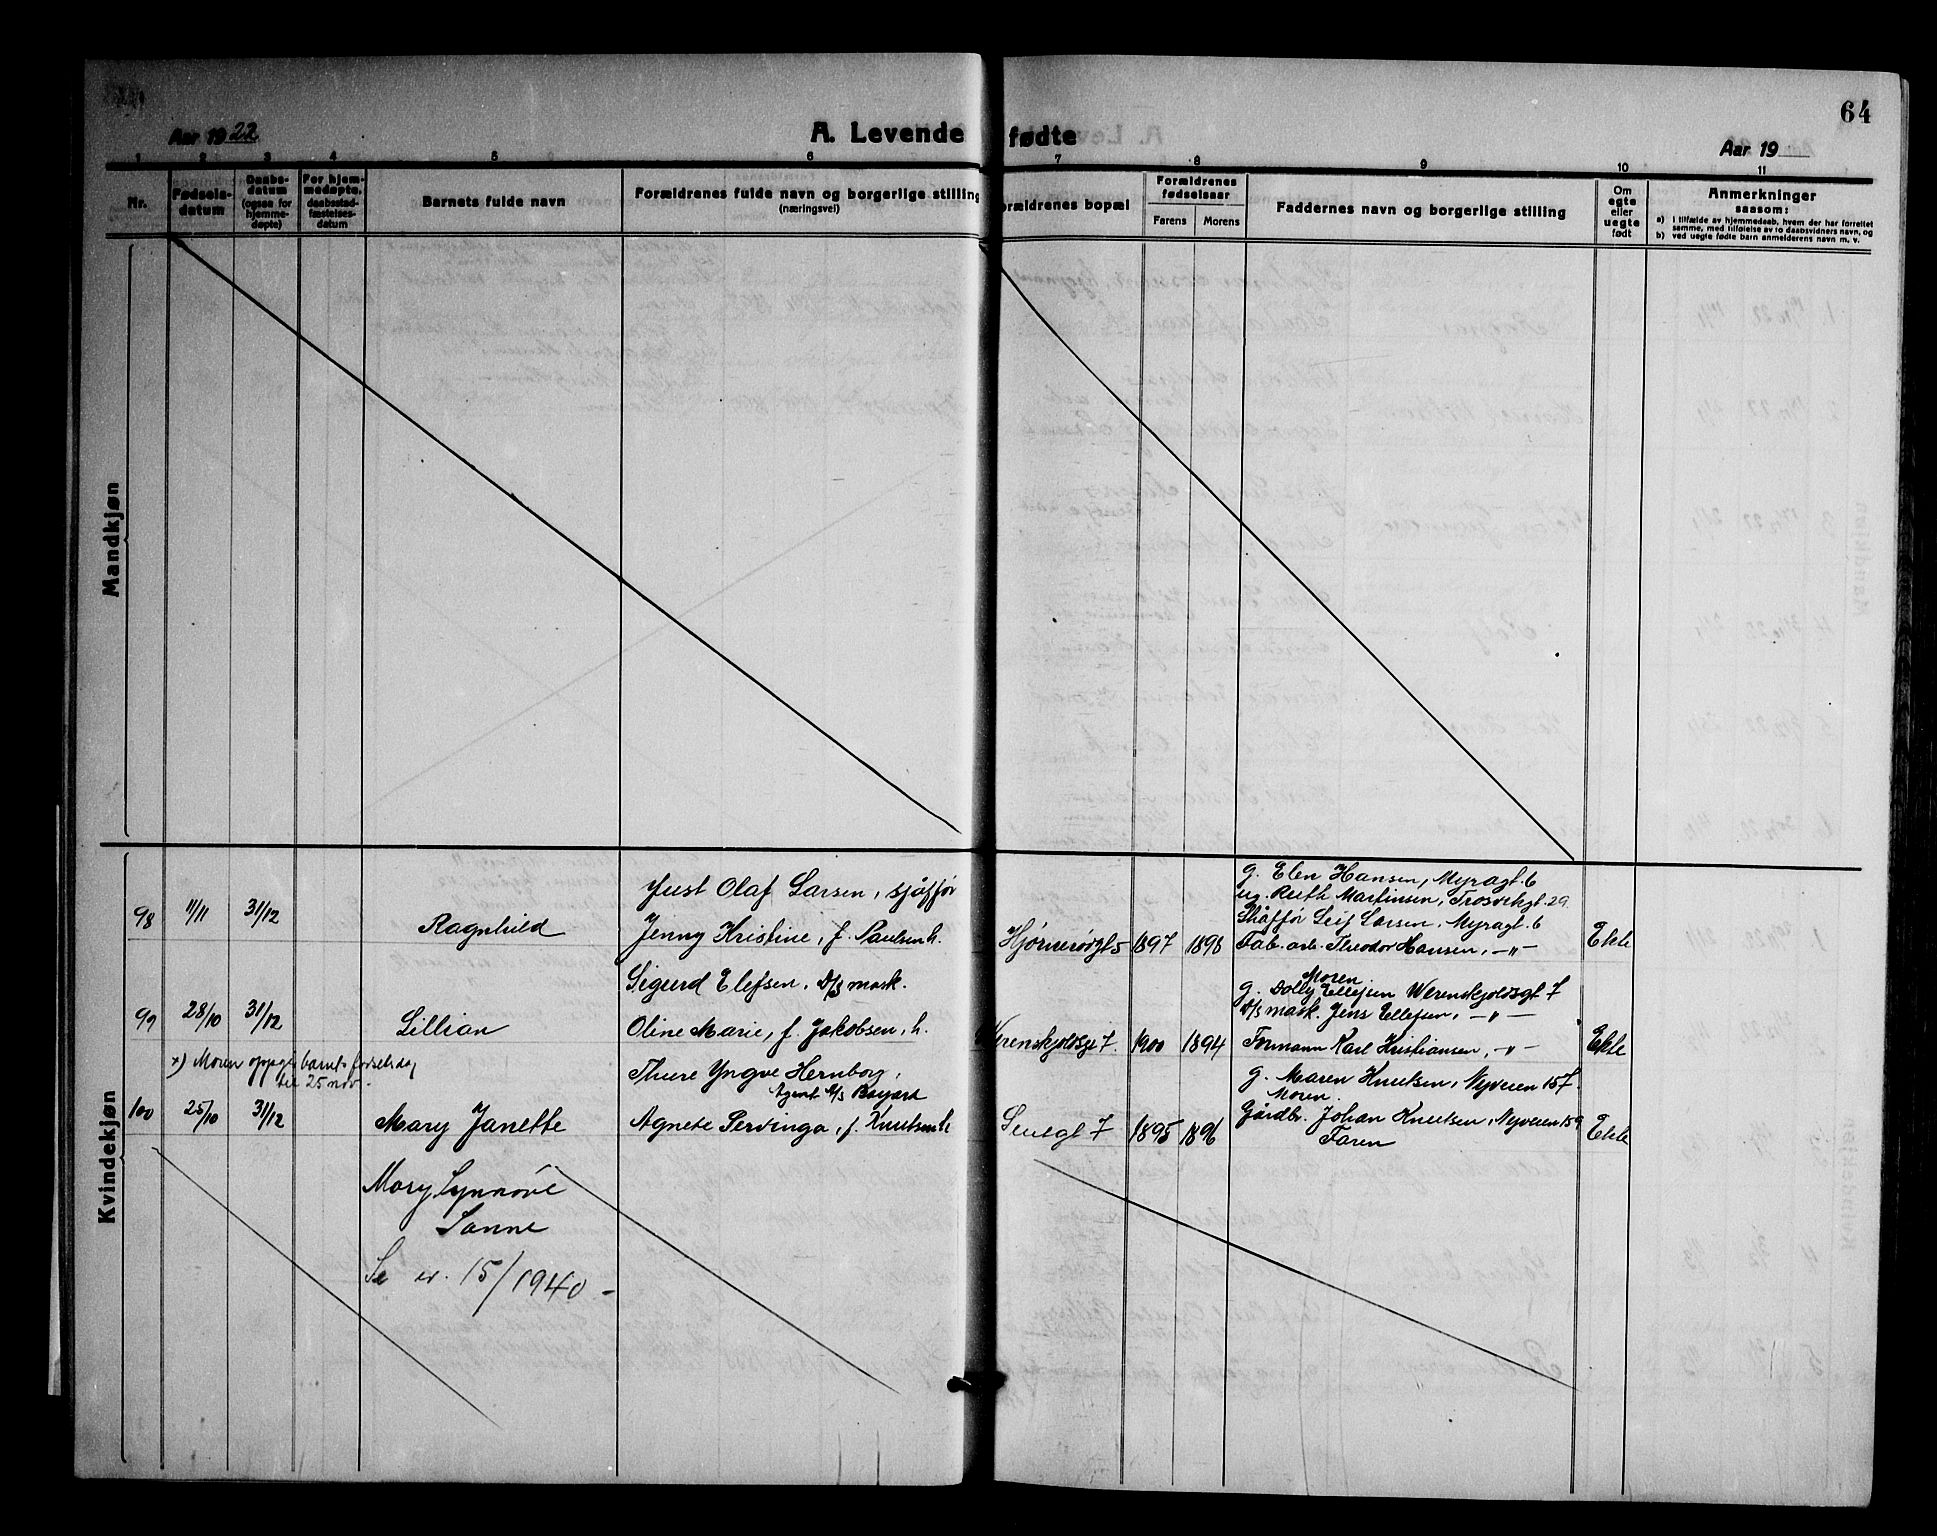 64
Aar 1922
A. Levende fødte
Aar 19
1 2 3 4 5 6 7 8 9 10 11
Nr.
Fødsels-
datum
Daabs-
datum
(ogsaa for
hjemme-
døpte)
For hjem-
medøpte,
daabsstad-
fæstelses-
datum
Barnets fulde navn
Forældrenes fulde navn og borgerlige stilling
(næringsvei)
Forældrenes bopæl
Forældrenes
fødselsaar
Farens Morens
Faddernes navn og borgerlige stilling
Om
egte
eller
uegte
født
Anmerkninger
saasom:
a) I tilfælde av hjemmedaab, hvem der har forrettet
samme, med tilføielse av to daabsvidners navn, og
b) ved uegte fødte barn anmelderens navn m. v.
Mandkjøn
Kvindekjøn
98 11/11 31/12 Ragnhild
Just Olaf Larsen, sjåffør
Jenny Kristine, f. Paulsen h.
Hjørnerødgt 5 1897 1898
g. Elen Hansen, Myragt. 6
ug. Ruth Martinsen, Trosvikgt. 29
Shåffør Leif Larsen, Myragt. 6
Fab. arb. Theodor Hansen, -"-
Ekte
99 28/10 31/12 Lillian
Sigurd Elefsen, D/s mask.
Oline Marie, f. Jakobsen, h.
Werenskjoldsgt 7. 1900 1894
Moren
g. Dolly Ellefsen Werenskjoldsgt 7
D/s mask. Jens Ellefsen, -"-
Formann Karl Kristiansen, -"-
Ekte
x) Moren oppgir barnets fødselsdag
til 25 nov.-
100 25/10 31/12 Mary Janette
Thure Yngve Hernborg,
Agent
Agnete Servinga, f. Knutsen h.
7 1895 1896
g. Maren Knutsen, Nyveien 157
Moren.
Gårdbr. Johan Knutsen, Nyveien 159
Faren
Ekte
Mary Synnøve
Sanne
Se 15/1940-